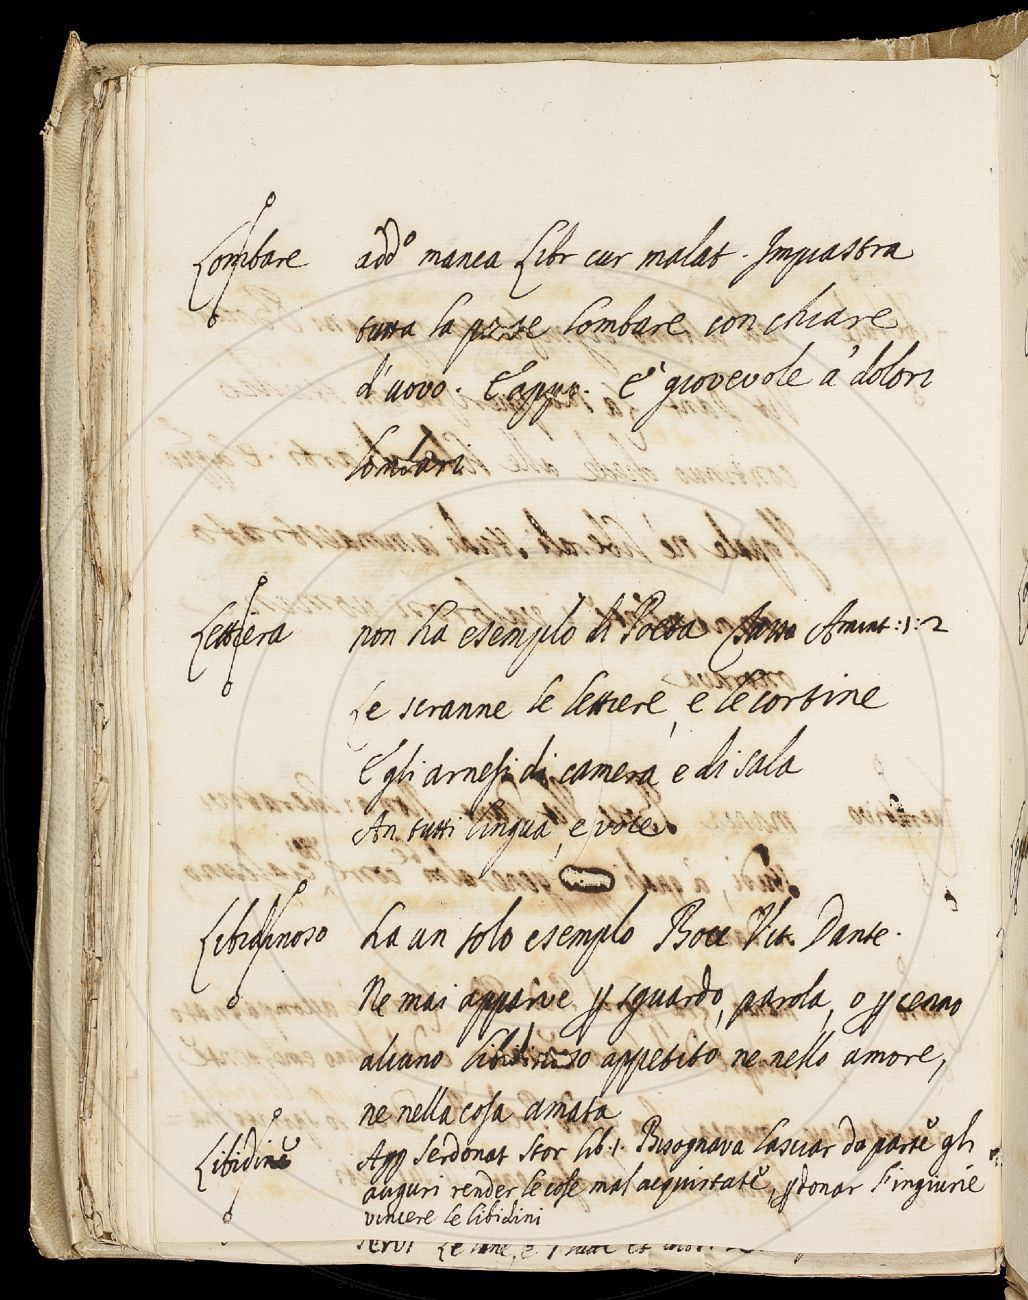 Lombare add.o manca Libr cur malat. Impiastra
tutta la parte lombare con chiare
d'uovo. E appo. E' giovevole a' dolori
lombari
Lettiera non ha esempio di Poeta Tasso Amint: 1: 2
Le scranne le lettiere, e le cortine
E gli arnesi di camera e di sala
An tutti lingua, e voce.
Libidinoso ha un solo esempio Bocc Vit. Dante.
Ne mai apparve p sguardo, parola, o p cenno
alcuno libidinoso appetito, ne nello amore,
ne nella cosa amata
Libidine App Serdonat Stor lib. 1. Bisognava lasciar da parte gli
auguri render le cose mal acquistate, p donar l'ingiurie
vincere le libidini